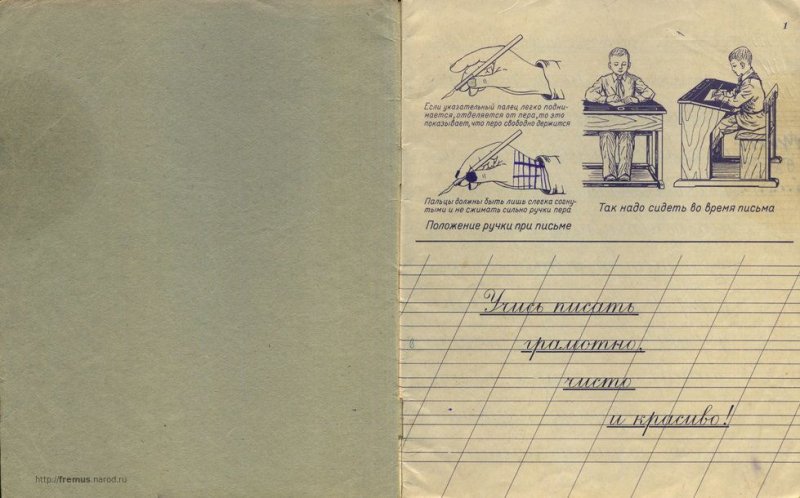 1
Если указательный палец легко подни-
мается, отделяется от пера, то это
показывает, что перо свободно держится
Пальцы должны быть лишь слегка согну-
тыми и не сжимать сильно ручки пера
Положение ручки при письме
Так надо сидеть во время письма
Учись писать
грамотно,
чисто
и красиво!
http://fremus.narod.ru